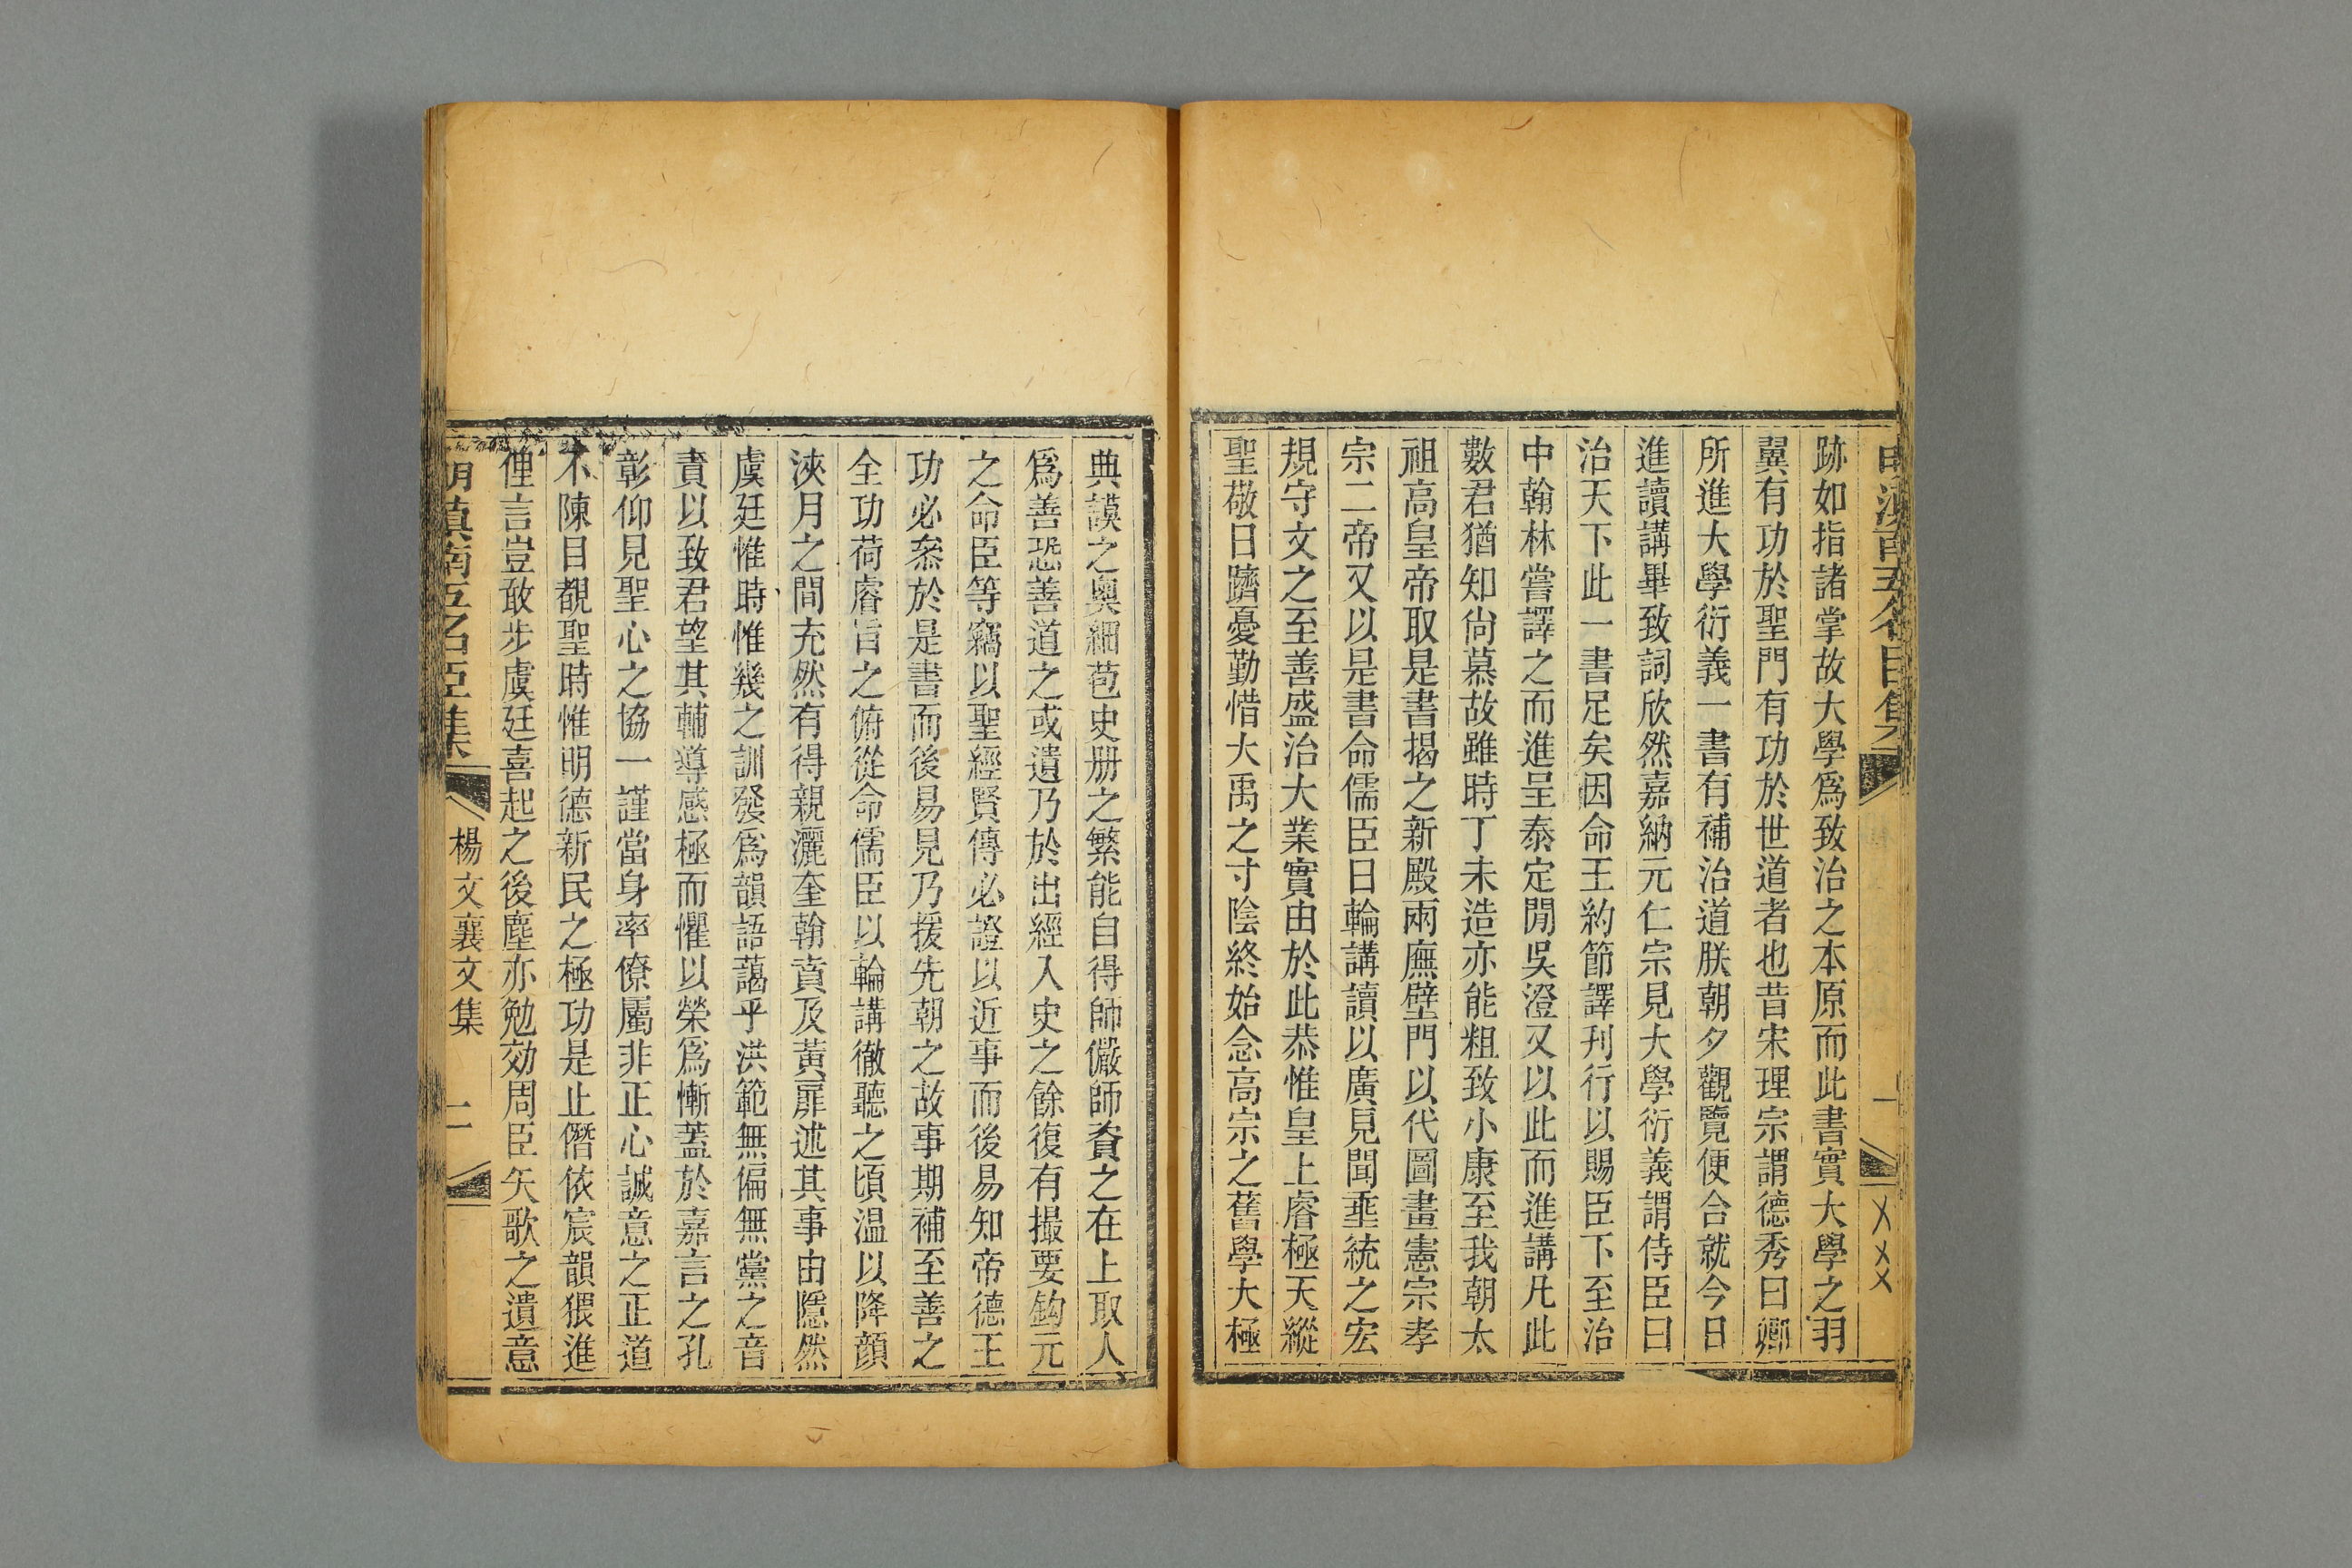 跡如指諸掌故大學爲致治之本原而此書實大學之羽
翼有功於聖門有功於世道者也昔宋理宗謂德秀曰卿
所進大學衍義一書有補治道朕朝夕觀覽便合就今日
進讀講畢致詞欣然嘉納元仁宗見大學衍義謂侍臣曰
治天下此一書足矣因命王約節譯刊行以賜臣下至治
中翰林嘗譯之而進呈泰定閒吳澄又以此而進講凡此
數君猶知尙慕故雖時丁未造亦能粗致小康至我朝太
祖高皇帝取是書揭之新殿兩廡壁門以代圖畫憲宗孝
宗二帝又以是書命儒臣日輪講讀以廣見聞垂統之宏
規守文之至善盛治大業實由於此恭惟皇上睿極天縱
聖敬日躋憂勤惜大禹之寸陰終始念高宗之舊學大極
典謨之奧細苞史册之繁能自得師儼師資之在上取人
爲善恐善道之或遺乃於出經入史之餘復有撮要鈎元
之命臣等竊以聖經賢傳必證以近事而後易知帝德王
功必叅於是書而後易見乃援先朝之故事期補至善之
全功荷睿旨之俯從命儒臣以輪講徹聽之頃温以降顏
浹月之間充然有得親灑奎翰賁及黃扉述其事由隱然
虞廷惟時惟幾之訓發爲韻語藹乎洪範無偏無黨之音
責以致君望其輔導感極而懼以榮爲慚蓋於嘉言之孔
彰仰見聖心之協一謹當身率僚屬非正心誠意之正道
不陳目覩聖時惟明德新民之極功是止僭依宸韻猥進
俚言豈敢步虞廷喜起之後塵亦勉効周臣矢歌之遺意
明滇南五名臣集 楊文襄文集 二